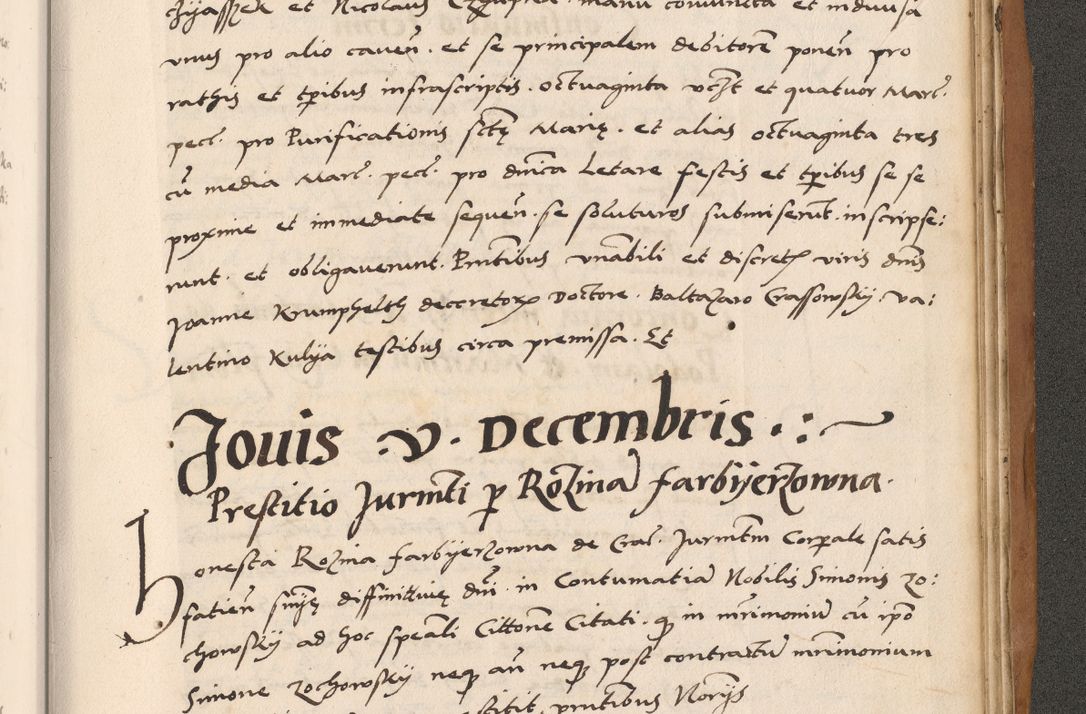 et Nicolaus manu coniuncta et indiuisa
vnus pro alio caven̄. et se principalem debitorē ponen̄ pro
rathis et tp̄ibus infrascriptis. octuaginta vt̄ et quatuor Marc.
pect. pro Purificationis sctę Marię. et alias octuaginta tres
cū media Marc. pect. pro dnīca Letare festis et tp̄ibus se se
proxime et immediate sequen̄. se soluturos submiserūt. inscripse:
runt. et obligauerunt. Pn̄tibus vn̄abili et discretꝭ viris dn̄is
Joanne Krumphelth decretorꝝ Doctore. Baltazaro Crassowsky. va:
lentino Kulya testibus circa premissa. Et
Jouis .V. Decembris . : ~
Prestitio Jurmn̄ti p̱ Rozina farbyerzowna.
honesta Rozina farbyerzowna de Crac. Jurmn̄tm Corp̱ale satis
fatien̄ sn̄ię diffinitivię dn̄i. in Contumatia Nobilis Simonis zo:
chowsky ad hoc speāli Cittone Citati. ꝙ in mr̄imoniū cū ip̄o
Simone zochowsky neqꝫ an̄ neqꝫ post contractū mr̄imonium
p̄ntibus Norijs